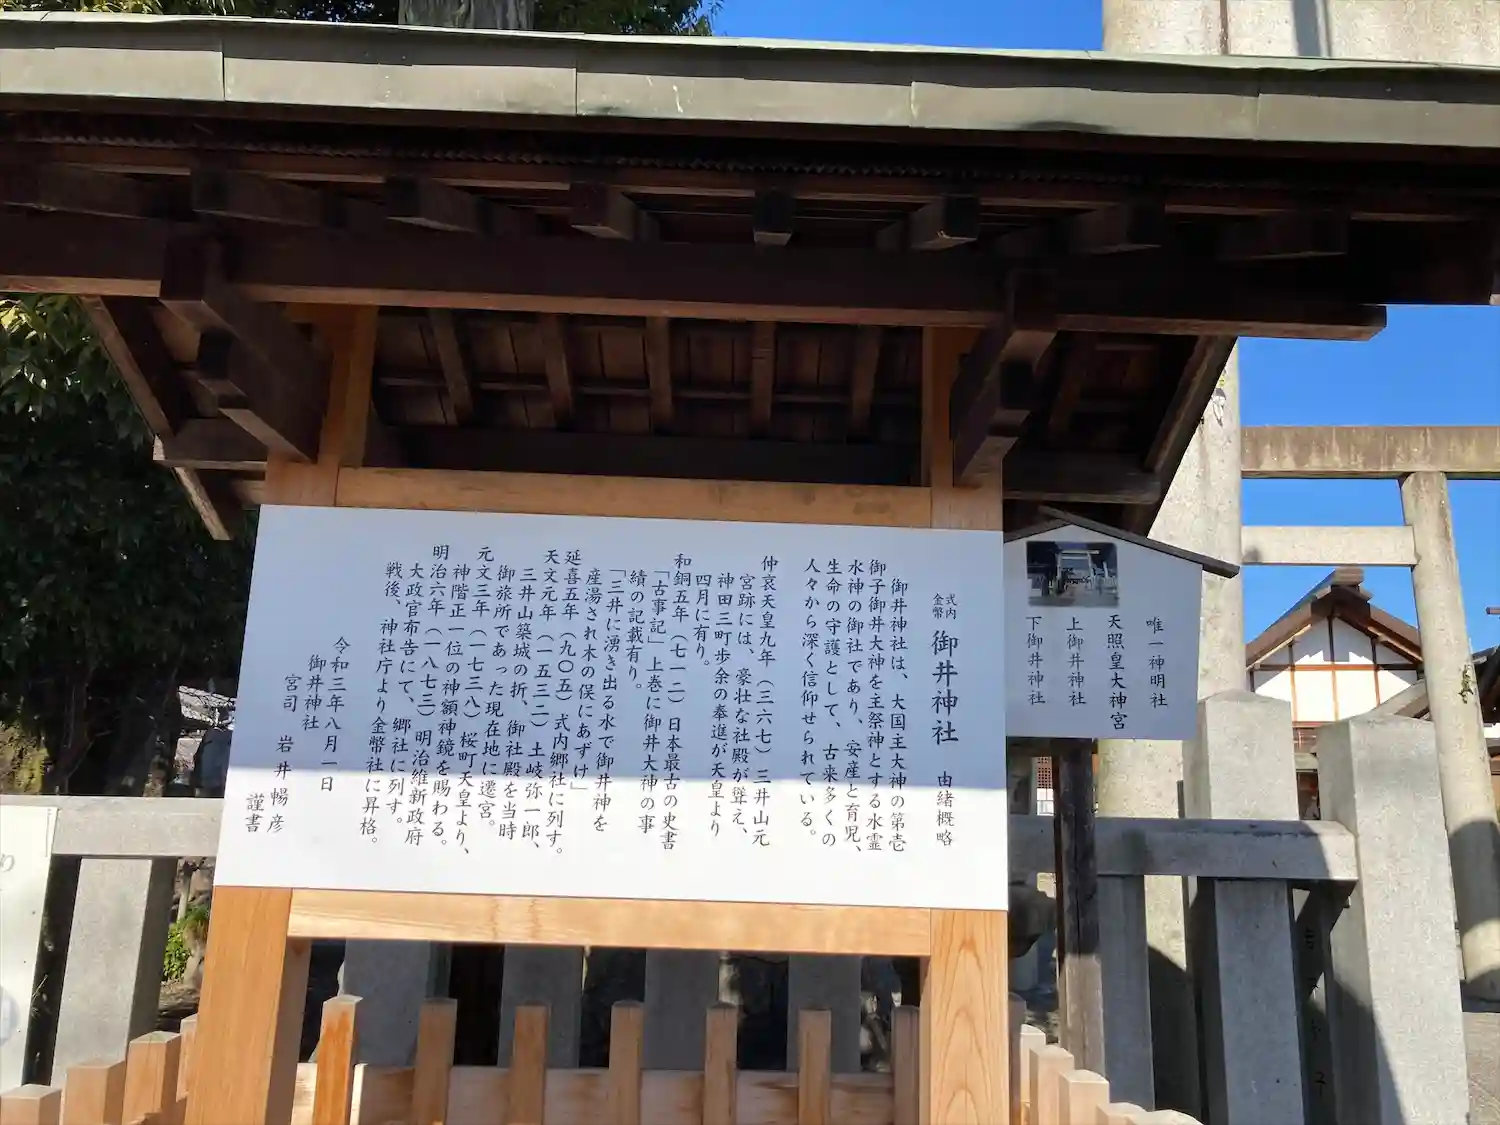 式内
金幣
御井神社 由緒概略
御井神社は、大国主大神の第壱
御子御井大神を主祭神とする水霊
水神の御社であり、安産と育児、
生命の守護として、古来多くの
人々から深く信仰せられている。
仲哀天皇九年(三六七)三井山元
宮跡には、豪壮な社殿が聳え、
神田三町歩余の奉進が天皇より
四月に有り。
和銅五年(七一二)日本最古の史書
「古事記」上巻に御井大神の事
績の記載有り。
「三井に湧き出る水で御井神を
産湯され木の俣にあずけ」
延喜五年(九〇五)式内郷社に列す。
天文元年(一五三二)土岐弥一郎、
三井山築城の折、御社殿を当時
御旅所であった現在地に遷宮。
元文三年(一七三八)桜町天皇より、
神階正一位の神額神鏡を賜わる。
明治六年(一八七三)明治維新政府
大政官布告にて、郷社に列す。
戦後、神社庁より金幣社に昇格。
令和三年八月一日
御井神社
宮司 岩井暢彦
謹書
唯一神明社
天照皇大神宮
上御井神社
下御井神社